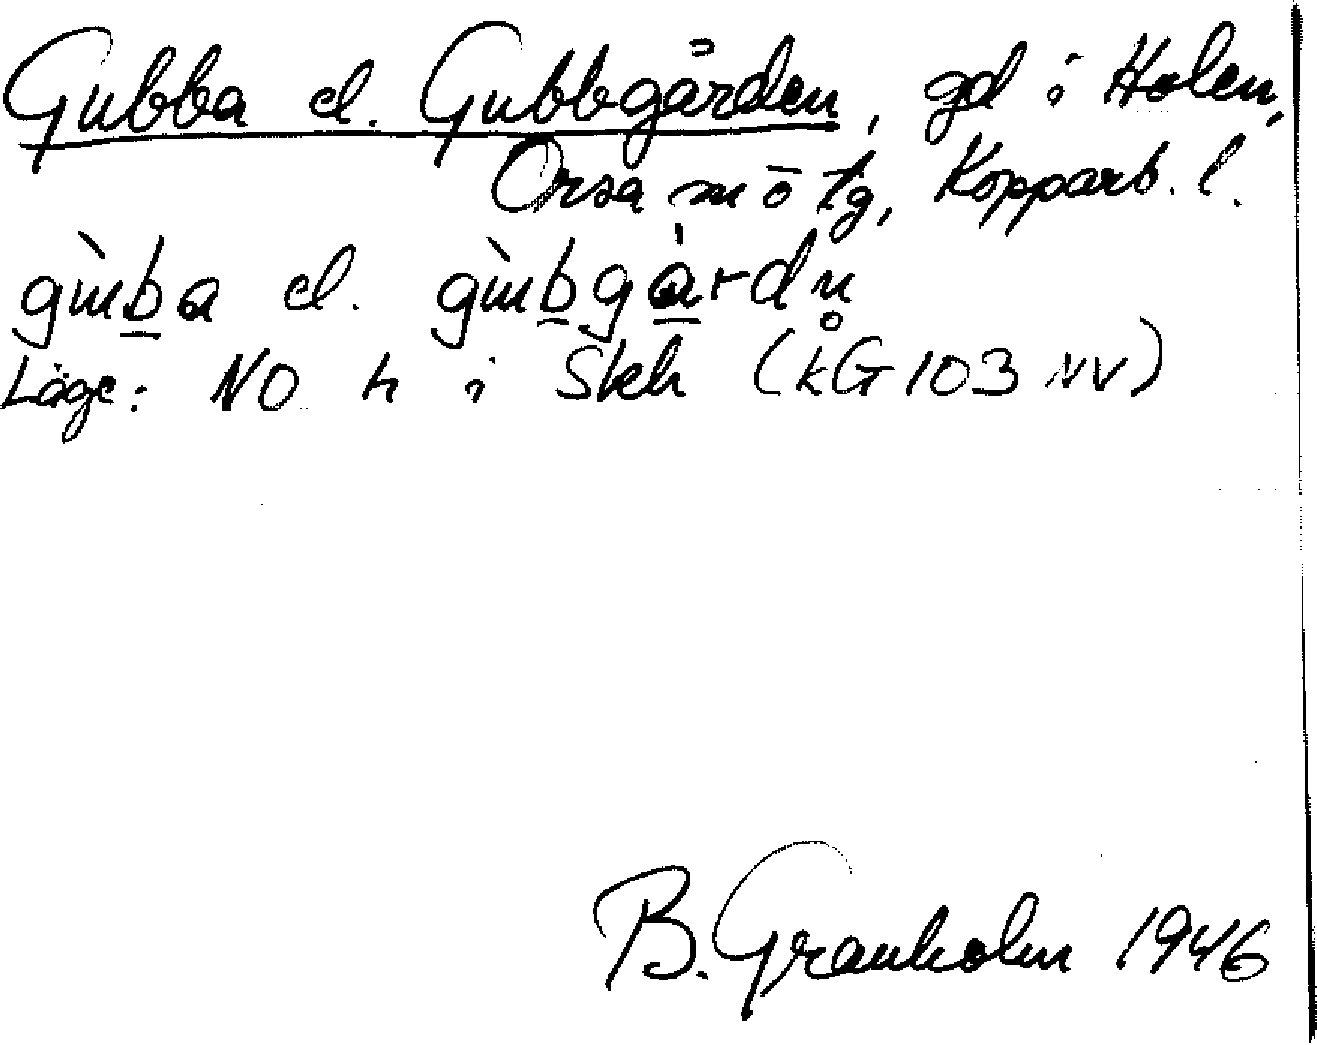 Gubba el. Gubbgården, gd i Holen,
Orsa sn ö tg, Kopparb. l.
gùb̲a el. gùb̲gà̲rdn̥
Läge: NO h i Skh (kG 103 NV)
B. Granholm 1946